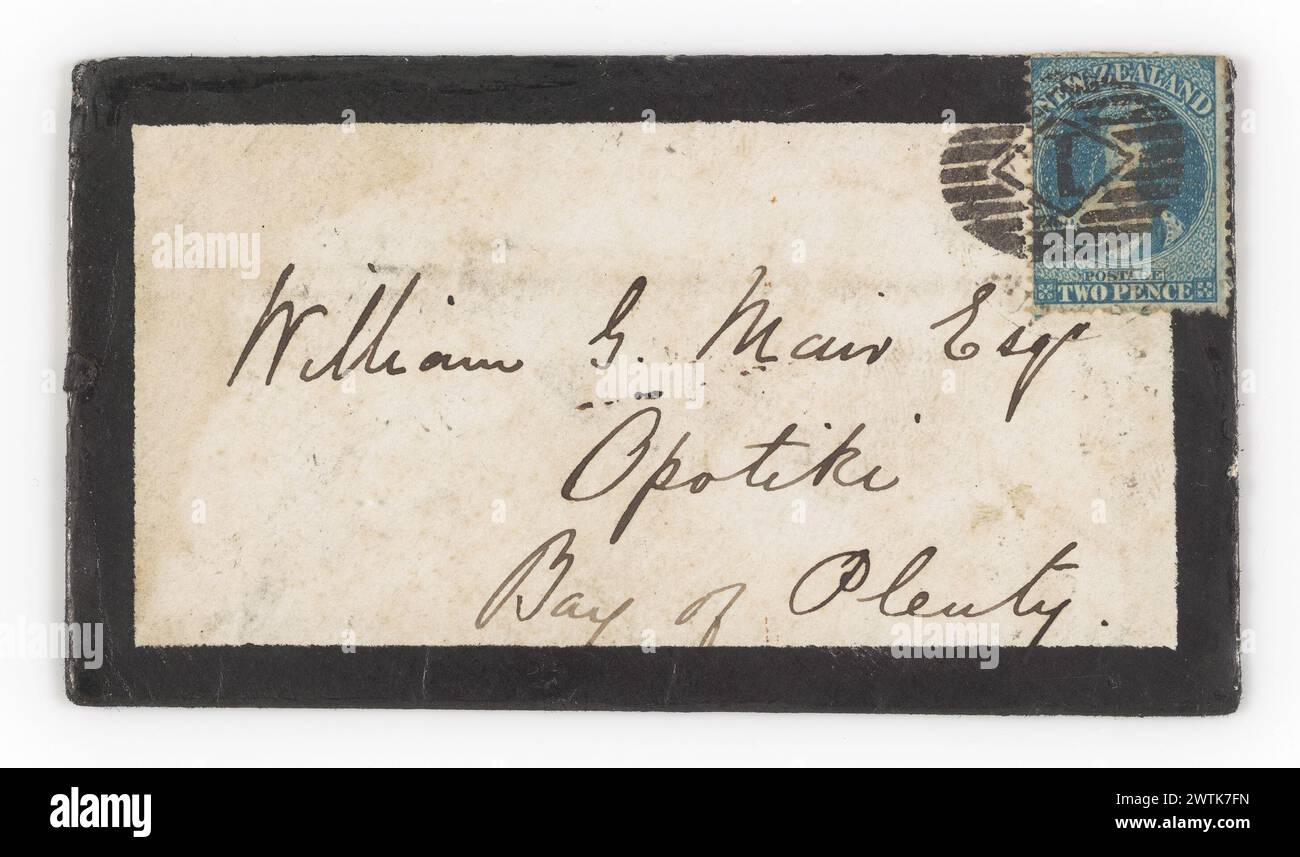 NEW ZEALAND
POSTAGE
TWO PENCE
William G. Mair Esqr
Opotiki
Bay of Plenty.
a
alamy
Image ID: 2WTK7FN
www.alamy.com